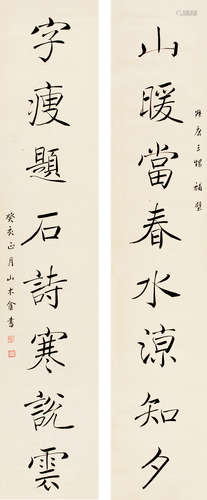 山暖當春水涼知夕
字瘦題石詩寒說雲
癸亥正月山木盒書